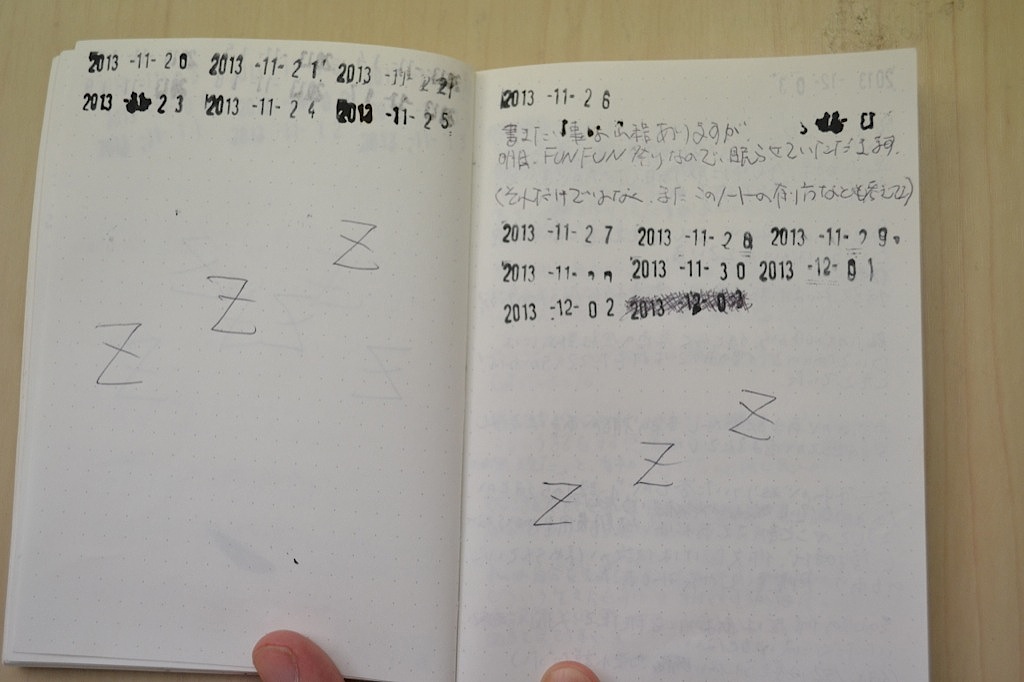 2013 -11- 20 2013 -11- 21 2013 -11- 22
2013 23 2013 -11- 24 2013 -11- 25
Z
Z
Z
2013 -11- 26
書きたい事は山程ありますが
明日、FUNFUN祭りなので、眠らせていただきます。
(それだけではなく、またこのノートの在り方なども考えて)
2013 -11- 27 2013 -11- 28 2013 -11- 29
2013 -11- 2013 -11- 30 2013 -12- 01
2013 -12- 02 2013 -12- 03
Z
Z
Z